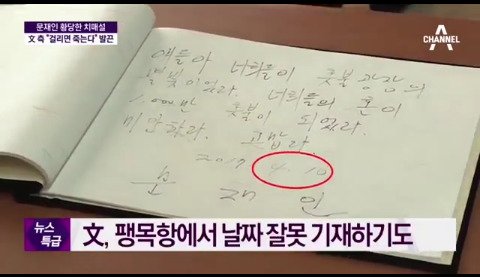 문재인 황당한 치매설
文 측 "걸리면 죽는다" 발끈
CHANNEL A
얘들아 너희들이 촛불 광장의
별빛이었다. 너희들의 혼이
1,000만 촛불이 되었다.
미안하다. 고맙다
2017 4. 10
문 재 인
뉴스
특급
文, 팽목항에서 날짜 잘못 기재하기도